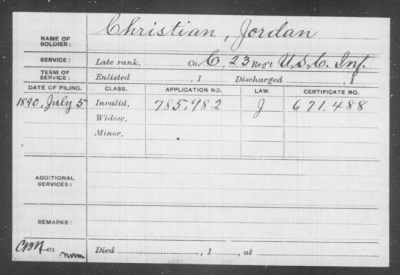 NAME OF SOLDIER: Christian, Jordan
SERVICE: Late rank, Co. C, 23 Reg't U.S.C. Inf.
TERM OF SERVICE: Enlisted , 1 Discharged , 1
DATE OF FILING. CLASS. APPLICATION NO. LAW. CERTIFICATE NO.
1890, July 5 Invalid, 785,982 J 671,488
Widow,
Minor,
ADDITIONAL SERVICES:
REMARKS:
Died , 1 , at